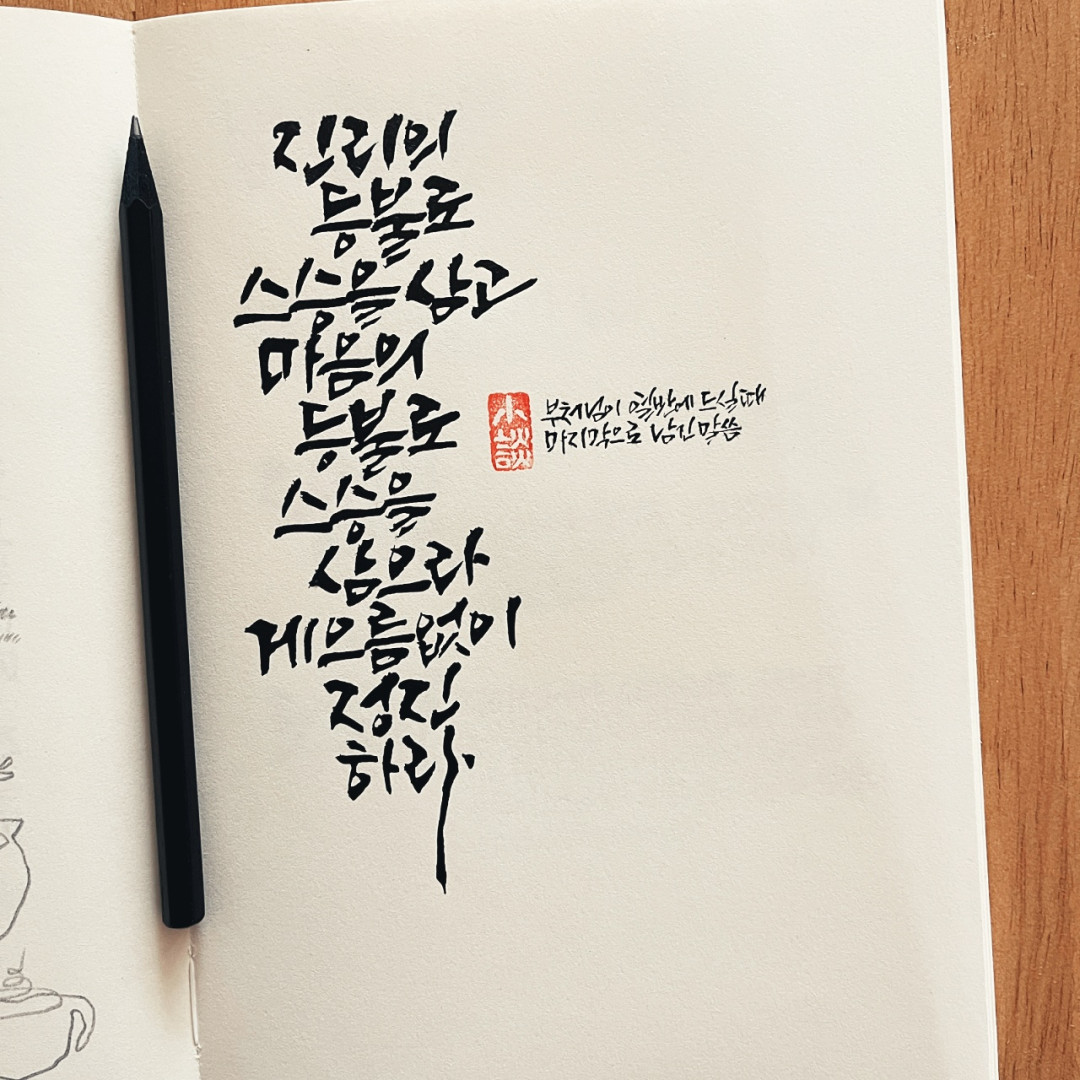 진리의
등불로
스승을 삼고
마음의
등불로
스승을
삼으라
게으름없이
정진
하라
부처님이 열반에 드실때
마지막으로 남긴 말씀